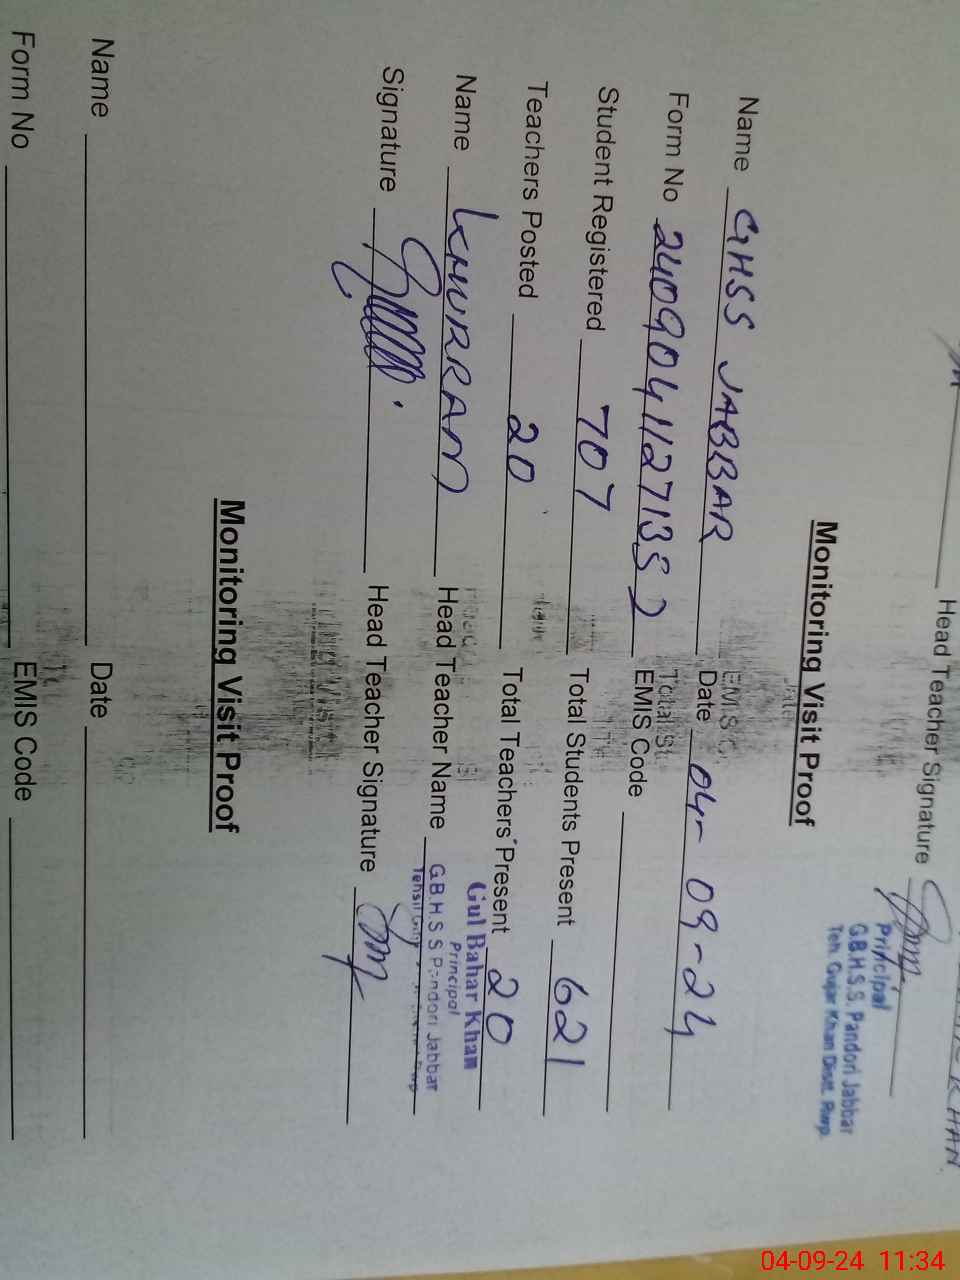 KHAN
Head Teacher Signature
Principal
G.B.H.S.S. Pandori Jabbar
Teh. Gujar Khan Distt. Rwp.
Monitoring Visit Proof
Name GHSS JABBAR Date 04-09-24
Form No EMIS Code
Student Registered 707 Total Students Present 621
Teachers Posted 20 Total Teachers Present 20
Name KHURRAM Head Teacher Name Gul Bahar Khan
Principal
G.B.H.S S Pandori Jabbar
Signature Head Teacher Signature
Monitoring Visit Proof
Name Date
Form No EMIS Code
04-09-24 11:34